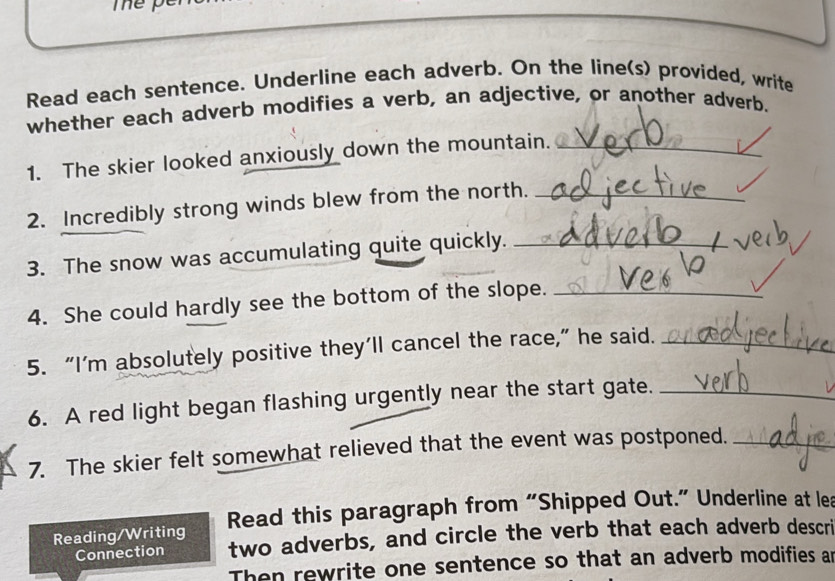 The
Read each sentence. Underline each adverb. On the line(s) provided, write
whether each adverb modifies a verb, an adjective, or another adverb.
1. The skier looked anxiously down the mountain. verb
2. Incredibly strong winds blew from the north. adjective
3. The snow was accumulating quite quickly. adverb, verb
4. She could hardly see the bottom of the slope. verb
5. “I’m absolutely positive they’ll cancel the race,” he said. adjective
6. A red light began flashing urgently near the start gate. verb
7. The skier felt somewhat relieved that the event was postponed. adje
Reading/Writing
Connection
Read this paragraph from “Shipped Out.” Underline at lea
two adverbs, and circle the verb that each adverb descri
Then rewrite one sentence so that an adverb modifies an